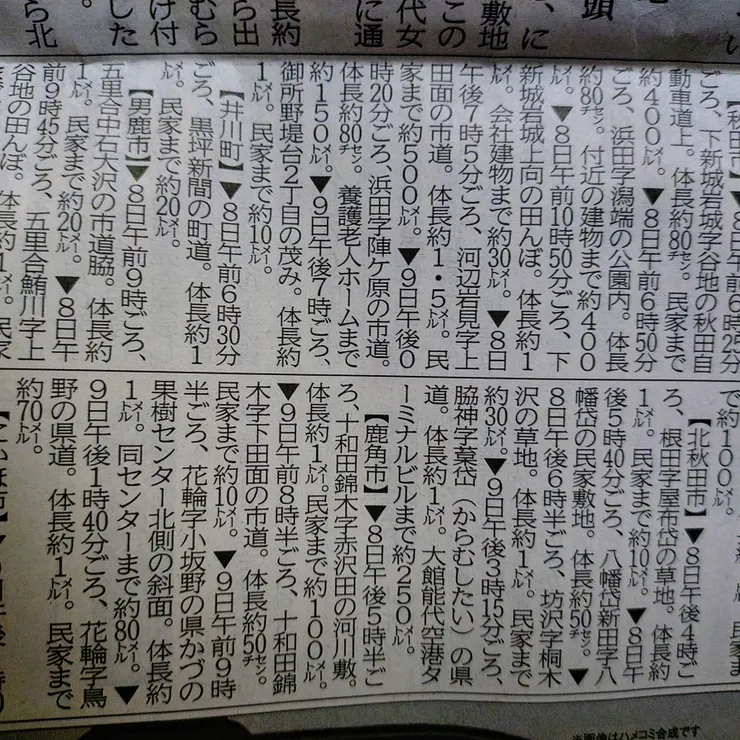 【秋田市】▼8日午前6時25分
ごろ、下新城岩城字谷地の秋田自
動車道上。体長約80㌢。民家まで
約400㍍。▼8日午前6時50分
ごろ、浜田字潟端の公園内。体長
約80㌢。付近の建物まで約400
㍍。▼8日午前10時50分ごろ、下
新城岩城上向の田んぼ。体長約1
㍍。会社建物まで約30㍍。▼8日
午後7時5分ごろ、河辺岩見字上
田面の市道。体長約1・5㍍。民
家まで約500㍍。▼9日午後0
時20分ごろ、浜田字陣ケ原の市道。
体長約80㌢。養護老人ホームまで
約150㍍。▼9日午後7時ごろ、
御所野堤台2丁目の茂み。体長約
1㍍。民家まで約10㍍。
【井川町】▼8日午前6時30分
ごろ、黒坪新間の町道。体長約1
㍍。民家まで約20㍍。
【男鹿市】▼8日午前9時ごろ、
五里合中石大沢の市道脇。体長約
1㍍。民家まで約20㍍。▼8日午
前9時45分ごろ、五里合鮪川字上
谷地の田んぼ。体長約1㍍。民家
で約100㍍。
【北秋田市】▼8日午後4時ご
ろ、根田字屋布岱の草地。体長約
1㍍。民家まで約10㍍。▼8日午
後5時40分ごろ、八幡岱新田字八
幡岱の民家敷地。体長約50㌢。▼
8日午後6時半ごろ、坊沢字桐木
沢の草地。体長約1㍍。民家まで
約30㍍。▼9日午後3時15分ごろ、
脇神字葈岱（からむしたい）の県
道。体長約1㍍。大館能代空港タ
ーミナルビルまで約250㍍。
【鹿角市】▼8日午後5時半ご
ろ、十和田錦木字赤沢田の河川敷。
体長約1㍍。民家まで約100㍍。
▼9日午前8時半ごろ、十和田錦
木字下田面の市道。体長約50㌢。
民家まで約10㍍。▼9日午前9時
半ごろ、花輪字小坂野の県かづの
果樹センター北側の斜面。体長約
1㍍。同センターまで約80㍍。▼
9日午後1時40分ごろ、花輪字鳥
野の県道。体長約1㍍。民家まで
約70㍍。
※画像はハメコミ合成です